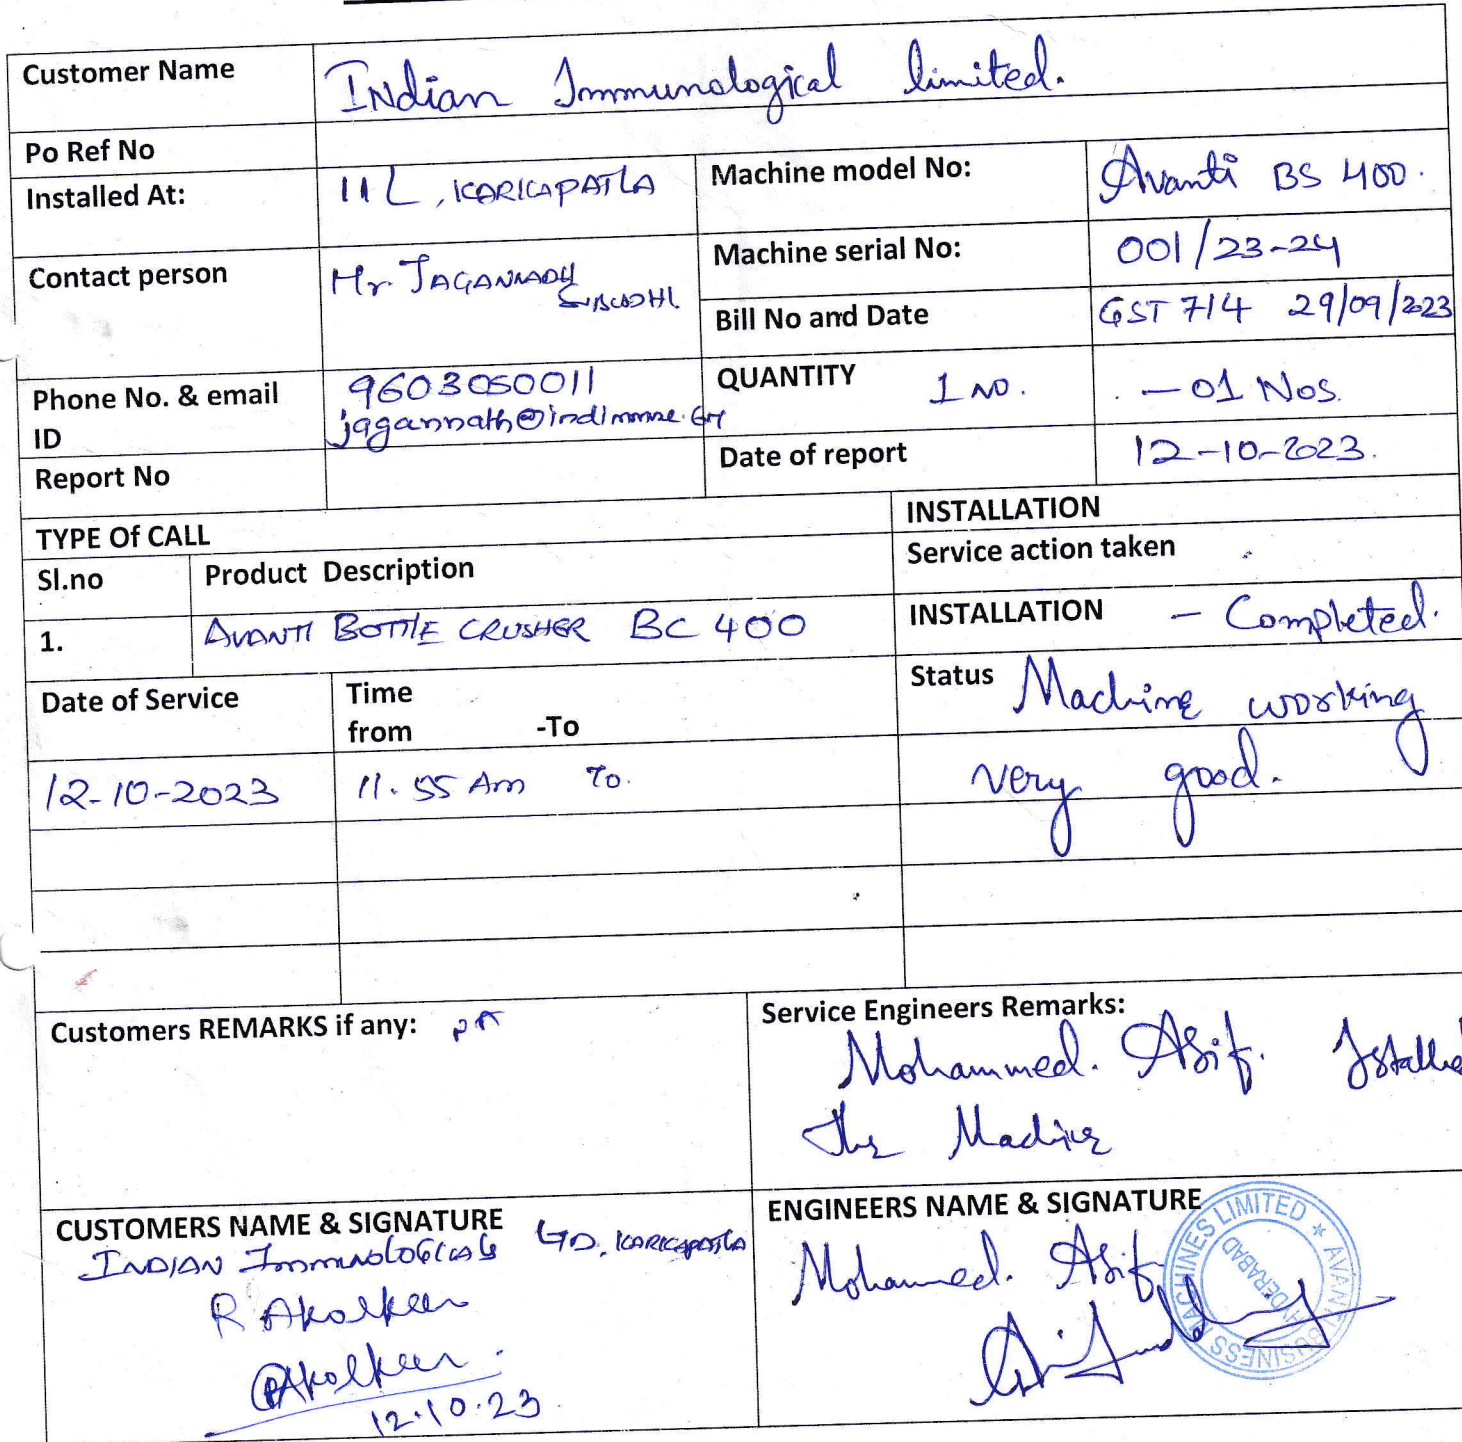 Customer Name Indian Immunological limited.
Po Ref No
Installed At: IIL, KARKAPATLA Machine model No: Avanti BS 400.
Contact person Mr. JAGANNADH Machine serial No: 001/23-24
Bill No and Date GST 714 29/09/2023
Phone No. & email 9603050011 QUANTITY 1 NO. - 01 Nos.
ID
Report No Date of report 12-10-2023.
TYPE Of CALL INSTALLATION
Sl.no Product Description Service action taken
1. AVANTI BOTTLE CRUSHER BC 400 INSTALLATION - Completed.
Date of Service Time Status Machine working
from -To
12-10-2023 11.55 Am To. very good.
Customers REMARKS if any: Service Engineers Remarks:
Mohammed. Asif. Istalled
The Machine
CUSTOMERS NAME & SIGNATURE ENGINEERS NAME & SIGNATURE
INDIAN Immunologicals LTD, KARKAPATLA Mohammed. Asif.
R Akolkar
RAkolkar
12.10.23
AVANTI BUSINESS MACHINES LIMITED
HYDERABAD